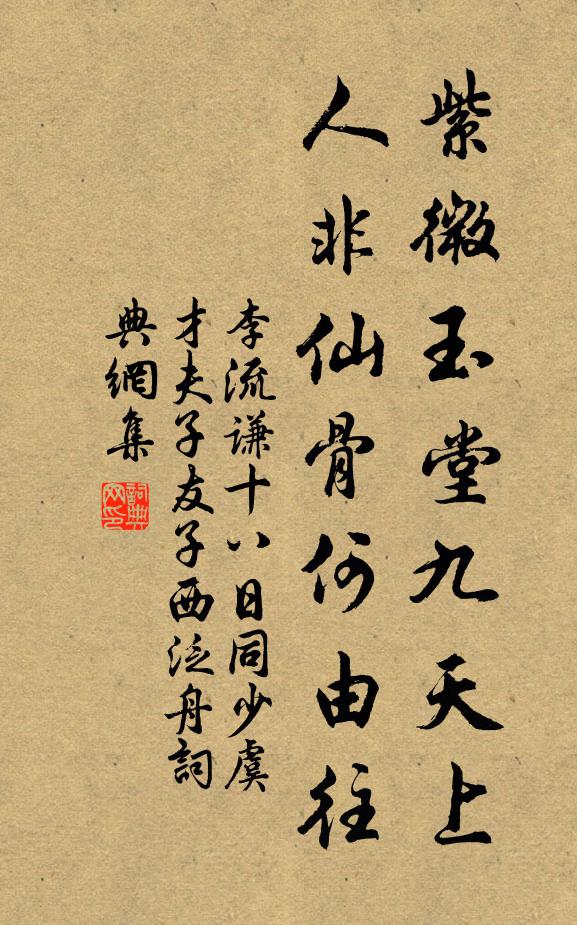 紫微玉堂九天上
人非仙骨何由往
李流謙十八日同少虞
才夫子友子西泛舟詞
典網集
詞典
网印